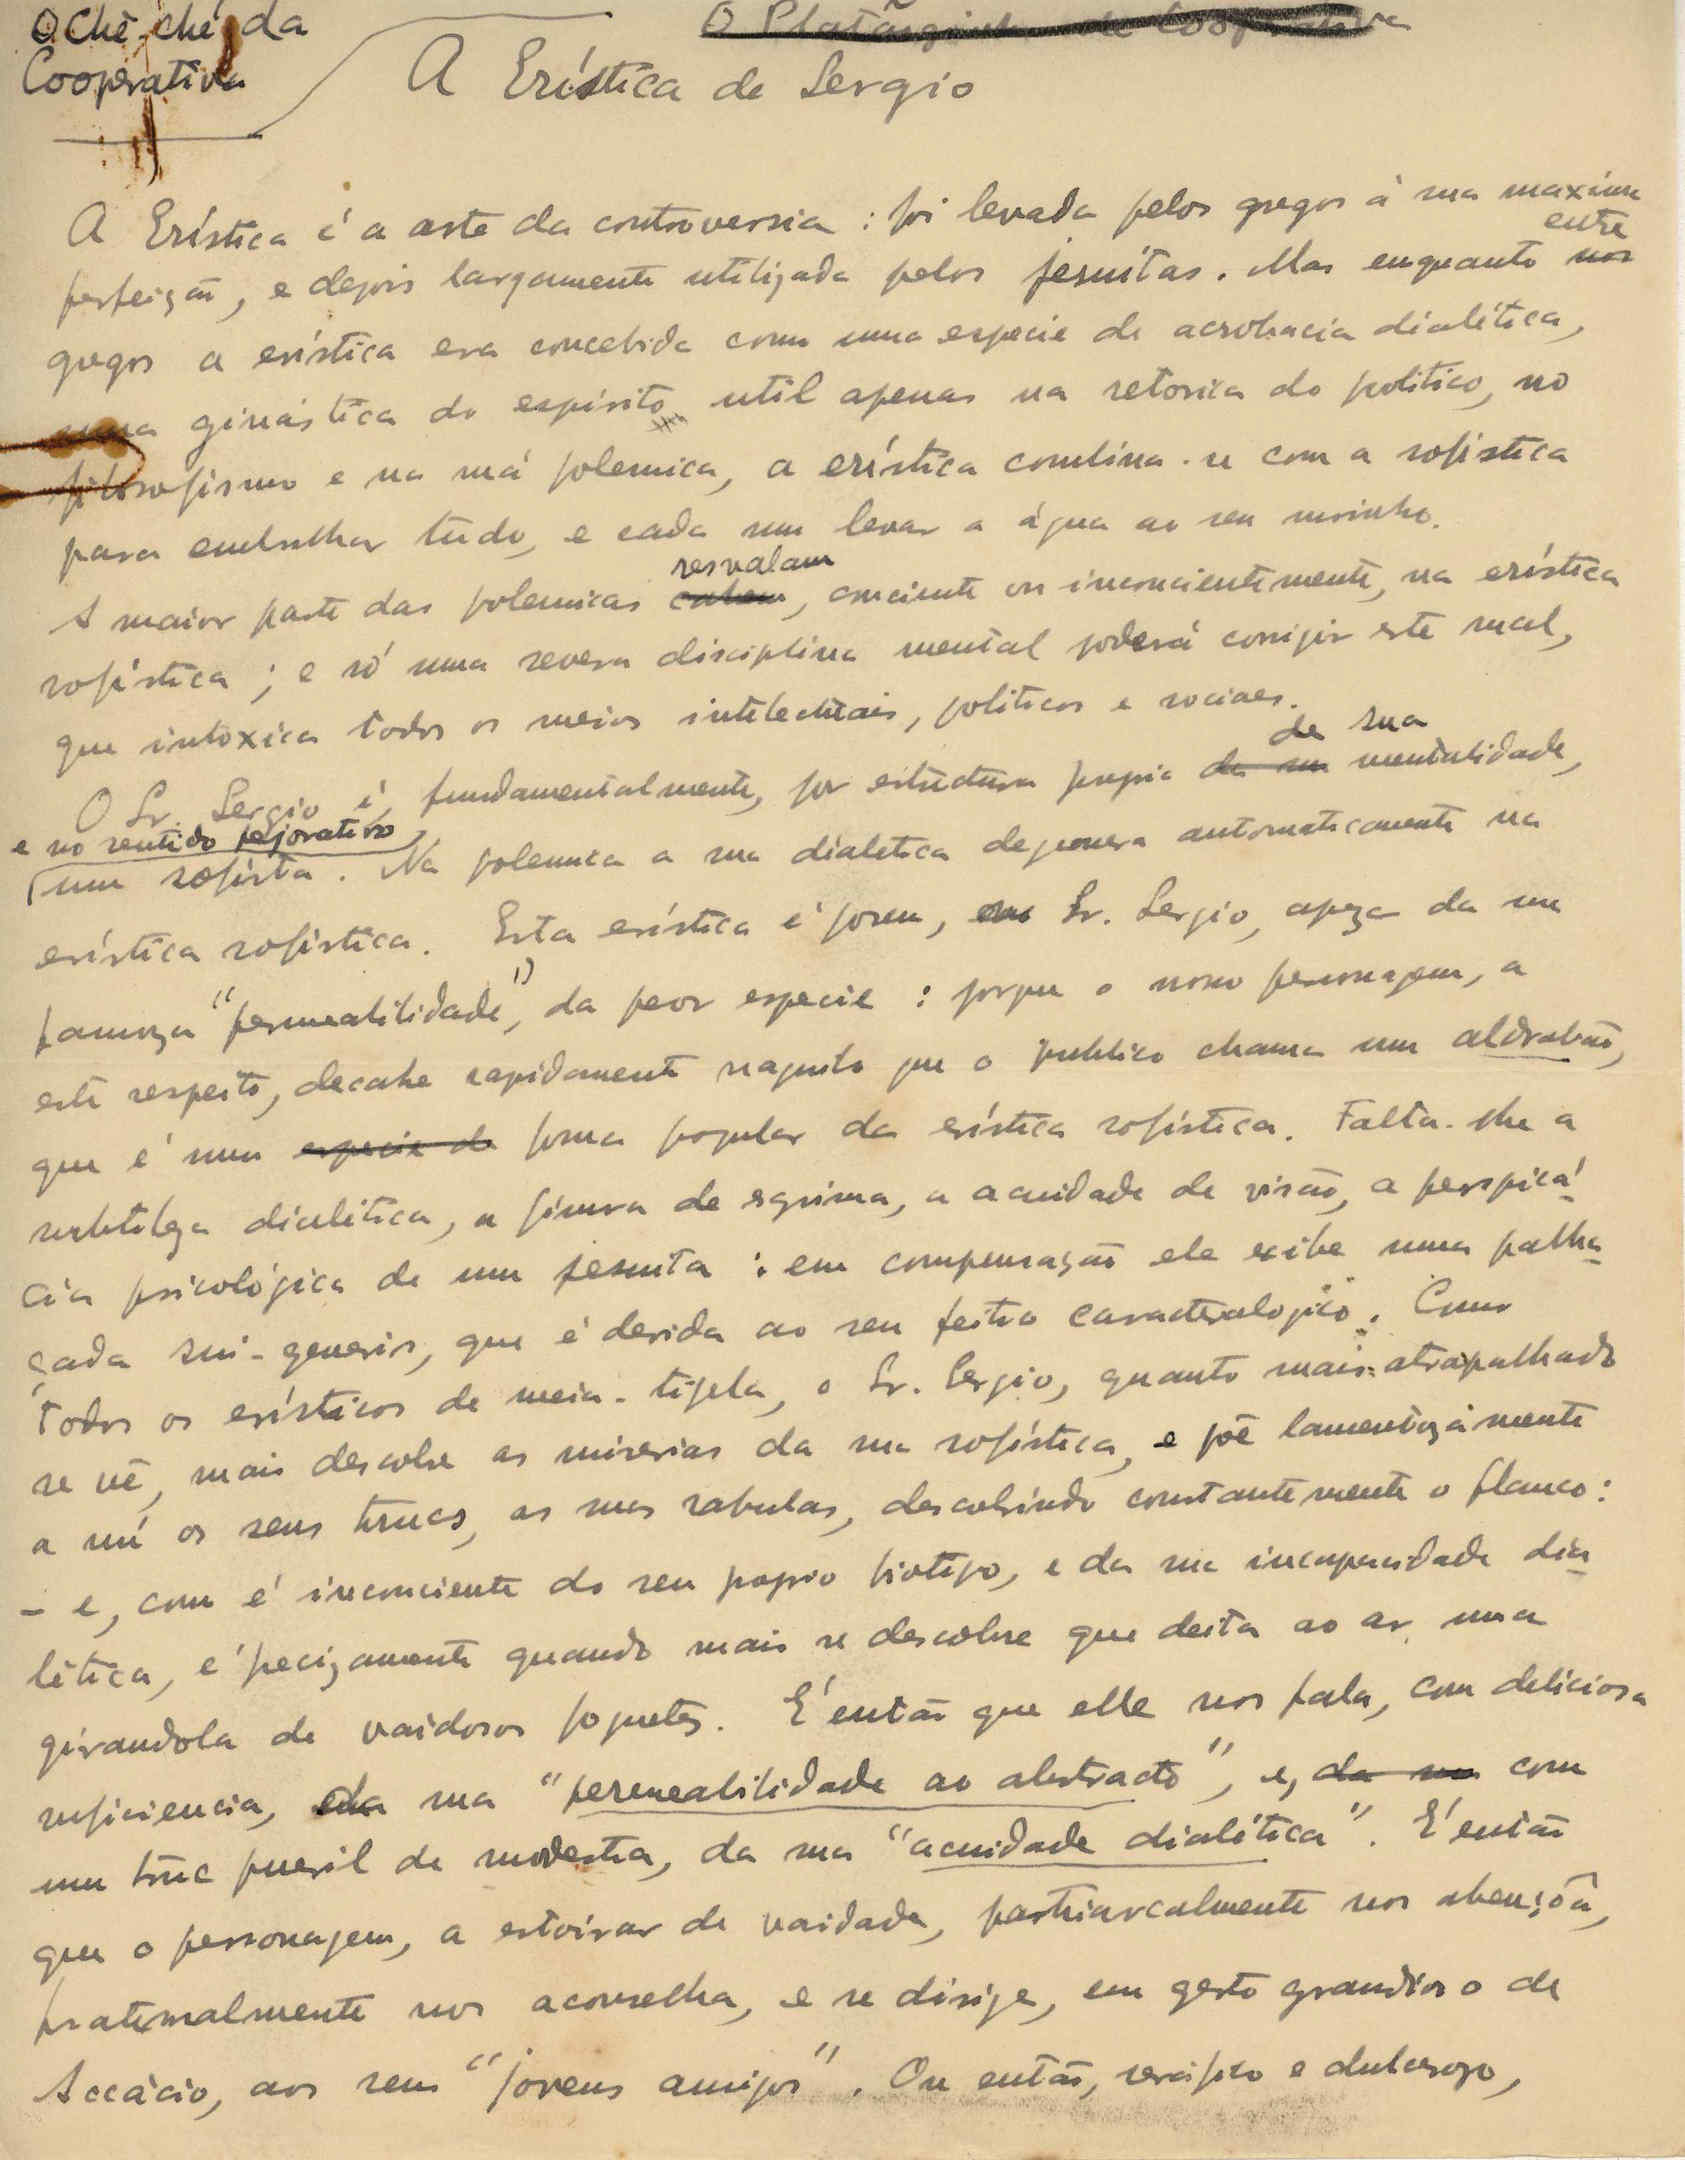 O Ché-ché da
Cooperativa
A Erística de Sergio
A Erística é a arte da controversia : foi levada pelos gregos á sua maxima
entre
perfeição, e depois largamente utilizada pelos jesuítas. Mas enquanto nos
gregos a erística era concebida como uma especie de acrobacia dialética,
uma ginástica do espírito util apenas na retorica do politico, no
filosofismo e na má polemica, a erística combina-se com a sofística
para embrulhar tudo, e cada um levar a água ao seu moinho.
resvalam
A maior parte das polemicas cahem, conciente ou inconcientemente, na erística
sofística ; e só uma severa disciplina mental poderá corrigir este mal,
que intoxica todos os meios intelectuais, politicos e sociaes.
de sua
O Sr. Sergio é, fundamentalmente, por estructura propria da su mentalidade,
e no sentido pejorativo
um sofista. Na polemica a sua dialetica degenera automaticamente na
erística sofística. Esta erística é porem, no Sr. Sergio, apeza da sua
famoza "permeabilidade", da peor especie : porque o nosso personagem, a
este respeito, decahe rapidamente naquilo que o publico chama um aldrabão,
que é uma especie de forma popular da erística sofística. Falta-lhe a
subtileza dialética, a finura de esgrima, a acuidade de visão, a perspicá-
cia psicológica de um jesuita : em compensação ele exibe uma palha-
çada sui-generis, que é devida ao seu feitio caracterologico. Como
todos os erísticos de meia-tijela, o Sr. Sergio, quanto mais atrapalhado
se vê, mais descobre as miserias da sua sofística, e põe lamentozamente
a nú os seus trucs, as suas rabulas, descobrindo constantemente o flanco :
- e, como é inconciente do seu proprio biotipo, e da sua incapacidade dia-
lética, é precizamente quando mais se descobre que deita ao ar uma
girandola de vaidosos foguetes. É então que elle nos fala, com deliciosa
suficiencia, da sua "permeabilidade ao abstracto", e, da sua com
um truc pueril de modestia, da sua "acuidade dialética". É então
que o personagem, a estoirar de vaidade, patriarcalmente nos abençôa,
fraternalmente nos aconselha, e se dirige, em gesto grandioso de
Accácio, aos seus "jovens amigos". Ou então, seráfico e dulcoroso,